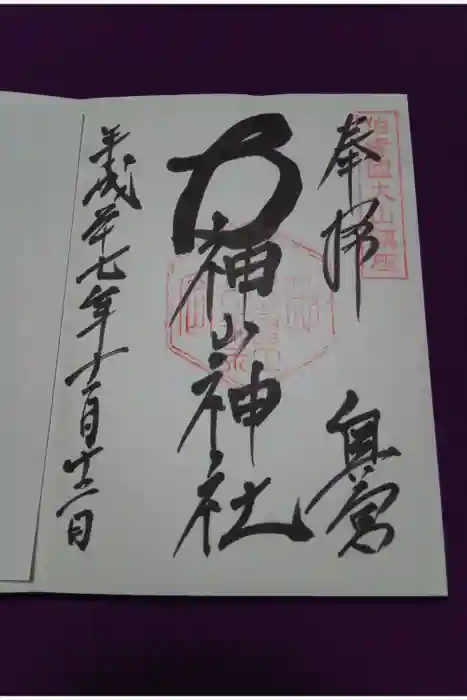 伯耆国大山鎮座
奉拝 奥宮
大神山神社
平成廿七年十一月十二日